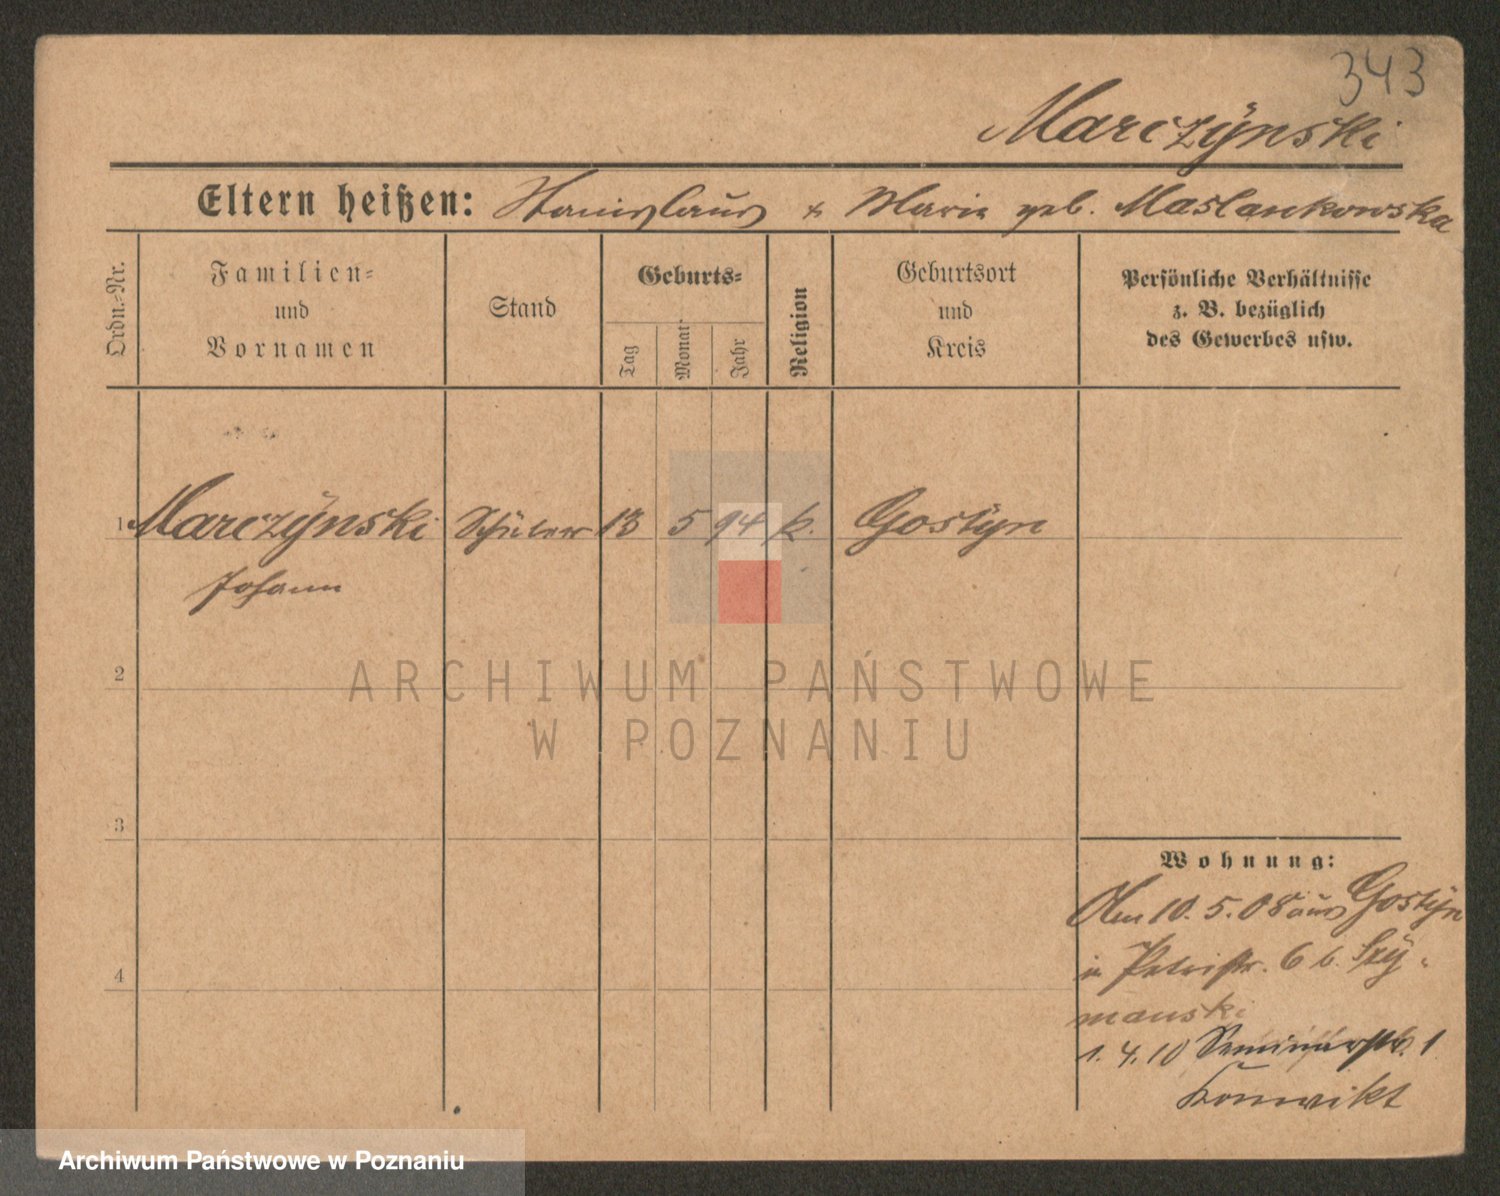 343
Marczÿnski
Eltern heißen: Stanislaus & Marie geb. Maslankowska
Ordn.-Nr.
Familien-
und
Vornamen
Stand
Geburts-
Tag
Monat
Jahr
Religion
Geburtsort
und
Kreis
Persönliche Verhältnisse
z. B. bezüglich
des Gewerbes usw.
1 Marczÿnski Schüler 13 5 94 k. Gostÿn
Johann
2
3
4
ARCHIWUM PAŃSTWOWE
W POZNANIU
Wohnung:
Am 10. 5. 08 aus Gostÿn
in Petristr. 6 b. Szÿ-
manski
1. 4. 10 Seminarstr. 1
Konvikt
Archiwum Państwowe w Poznaniu